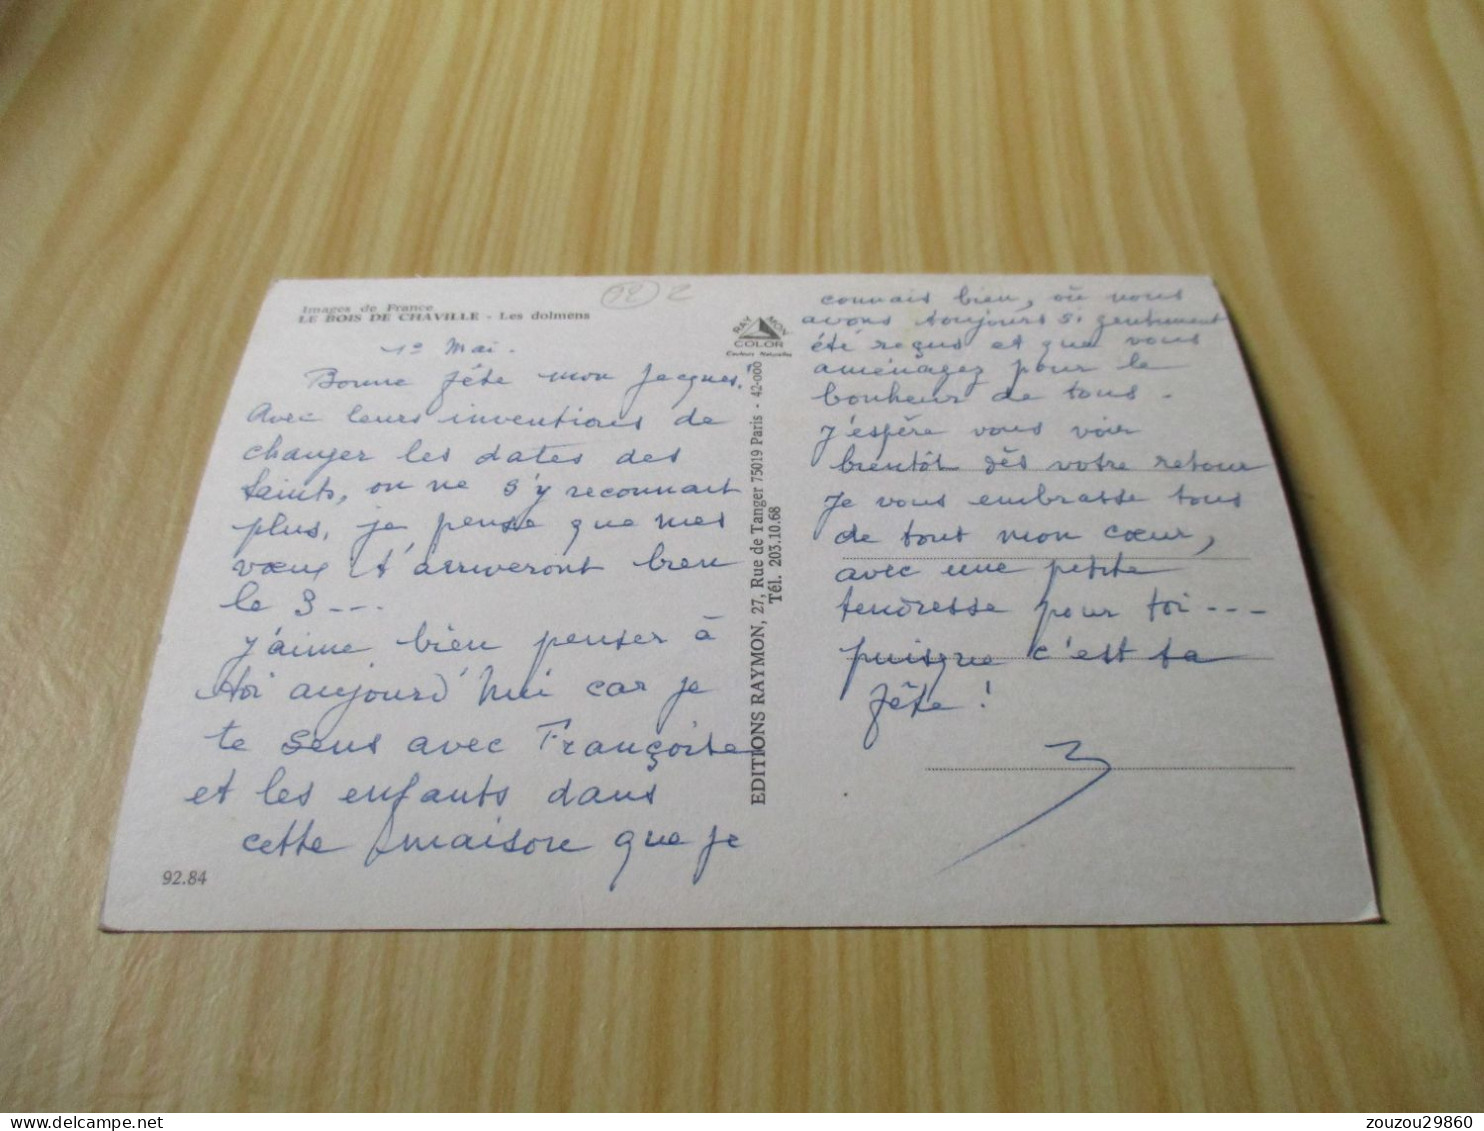 Images de France
LE BOIS DE CHAVILLE - Les dolmens
92 2
RAYMON
COLOR
Couleurs Naturelles
1º Mai.
Bonne fête mon Jacques.
Avec leurs inventions de
changer les dates des
Saints, on ne s'y reconnait
plus, je pense que mes
vœux t'arriveront bien
le 3 ---
J'aime bien penser à
toi aujourd'hui car je
te sens avec Françoise
et les enfants dans
cette maison que je
92.84
EDITIONS RAYMON, 27, Rue de Tanger 75019 Paris - 42-000
Tél. 203.10.68
connais bien, où nous
avons toujours si gentiment
été reçus et que vous
aménagez pour le
bonheur de tous.
J'espère vous voir
bientôt dès votre retour
Je vous embrasse tous
de tout mon cœur,
avec une petite
tendresse pour toi ---
puisque c'est ta
fête !
zouzou29860